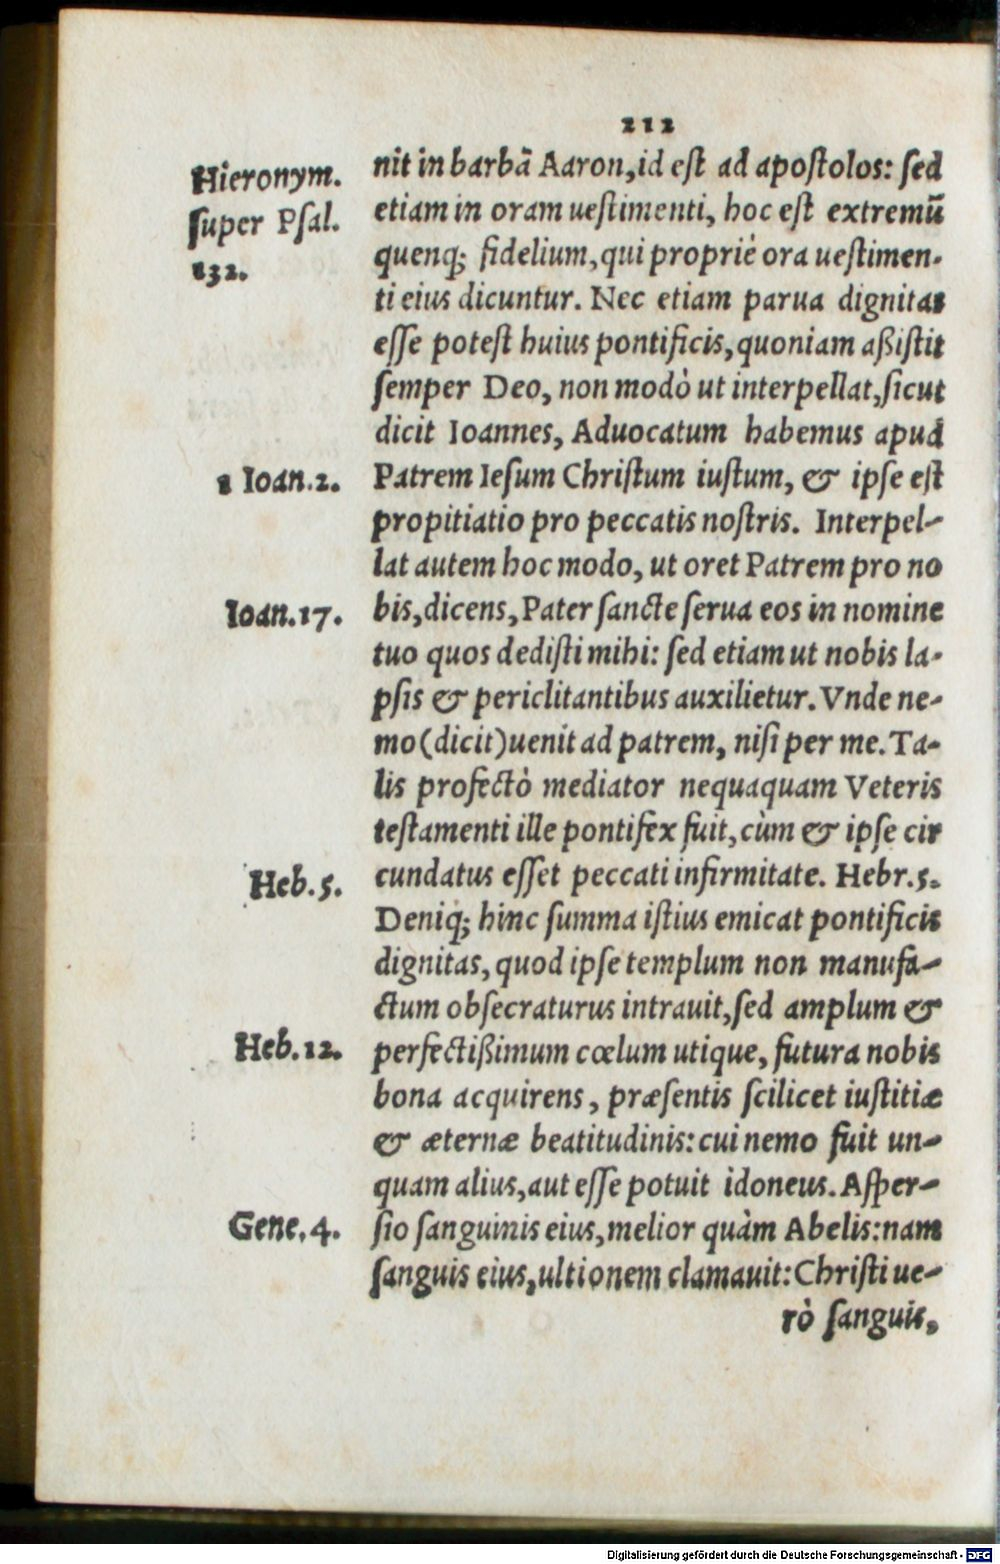 212
Hieronym.
super Psal.
132.
nit in barbã Aaron, id est ad apostolos: sed
etiam in oram uestimenti, hoc est extremũ
quenq; fidelium, qui propriè ora uestimen-
ti eius dicuntur. Nec etiam parua dignitas
esse potest huius pontificis, quoniam aßistit
semper Deo, non modò ut interpellat, sicut
dicit Ioannes, Aduocatum habemus apud
1 Ioan.2.
Patrem Iesum Christum iustum, & ipse est
propitiatio pro peccatis nostris. Interpel-
lat autem hoc modo, ut oret Patrem pro no
Ioan.17.
bis, dicens, Pater sancte serua eos in nomine
tuo quos dedisti mihi: sed etiam ut nobis la-
psis & periclitantibus auxilietur. Vnde ne-
mo (dicit) uenit ad patrem, nisi per me. Ta-
lis profectò mediator nequaquam Veteris
testamenti ille pontifex fuit, cùm & ipse cir
Heb.5.
cundatus esset peccati infirmitate. Hebr.5.
Deniq; hinc summa istius emicat pontificis
dignitas, quod ipse templum non manufa-
ctum obsecraturus intrauit, sed amplum &
Heb.12.
perfectißimum cœlum utique, futura nobis
bona acquirens, præsentis scilicet iustitiæ
& æternæ beatitudinis: cui nemo fuit un-
quam alius, aut esse potuit idoneus. Asper-
Gene.4.
sio sanguinis eius, melior quàm Abelis: nam
sanguis eius, ultionem clamauit: Christi ue-
rò sanguis,
Digitalisierung gefördert durch die Deutsche Forschungsgemeinschaft - DFG